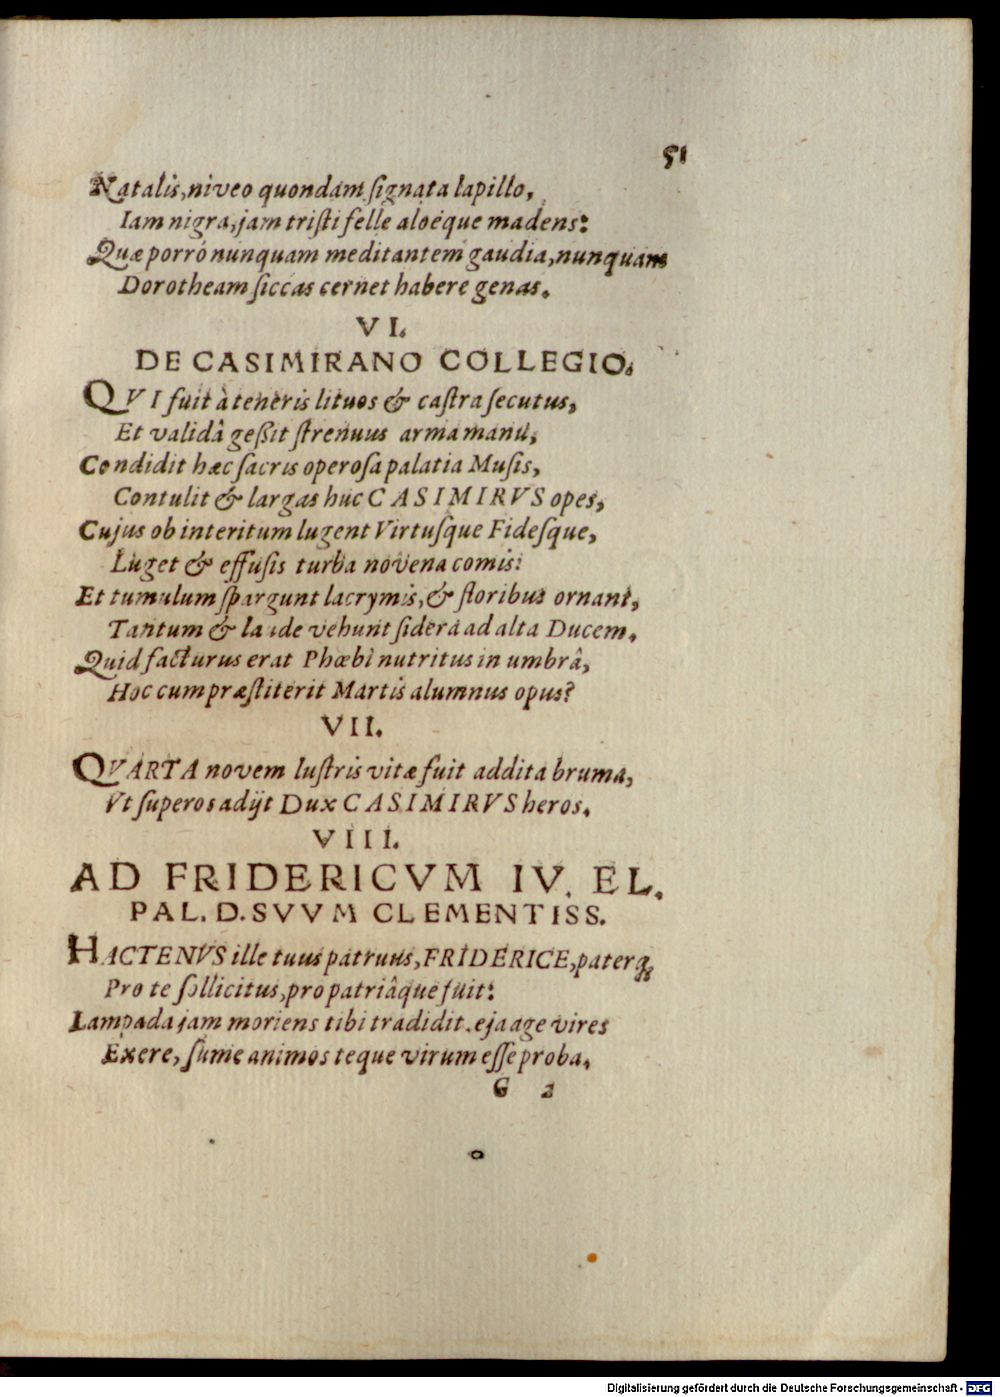 51
Natalis, niveo quondam signata lapillo,
Iam nigra, jam tristi felle aloëque madens:
Quæ porrò nunquam meditantem gaudia, nunquam
Dorotheam siccas cernet habere genas.
VI.
DE CASIMIRANO COLLEGIO.
QVI fuit à teneris lituos & castra secutus,
Et validâ geßit strenuus arma manu,
Condidit hæc sacris operosa palatia Musis,
Contulit & largas huc CASIMIRVS opes,
Cujus ob interitum lugent Virtusque Fidesque,
Luget & effusis turba novena comis:
Et tumulum spargunt lacrymis, & floribus ornant,
Tantum & laude vehunt sidera ad alta Ducem.
Quid facturus erat Phœbi nutritus in umbrâ,
Hoc cum præstiterit Martis alumnus opus?
VII.
QVARTA novem lustris vitæ fuit addita bruma,
Vt superos adijt Dux CASIMIRVS heros.
VIII.
AD FRIDERICVM IV. EL.
PAL. D. SVVM CLEMENTISS.
HACTENVS ille tuus patruus, FRIDERICE, paterq́;
Pro te sollicitus, pro patriâque fuit:
Lampada jam moriens tibi tradidit. eja age vires
Exere, sume animos teque virum esse proba.
G 2
Digitalisierung gefördert durch die Deutsche Forschungsgemeinschaft - DFG